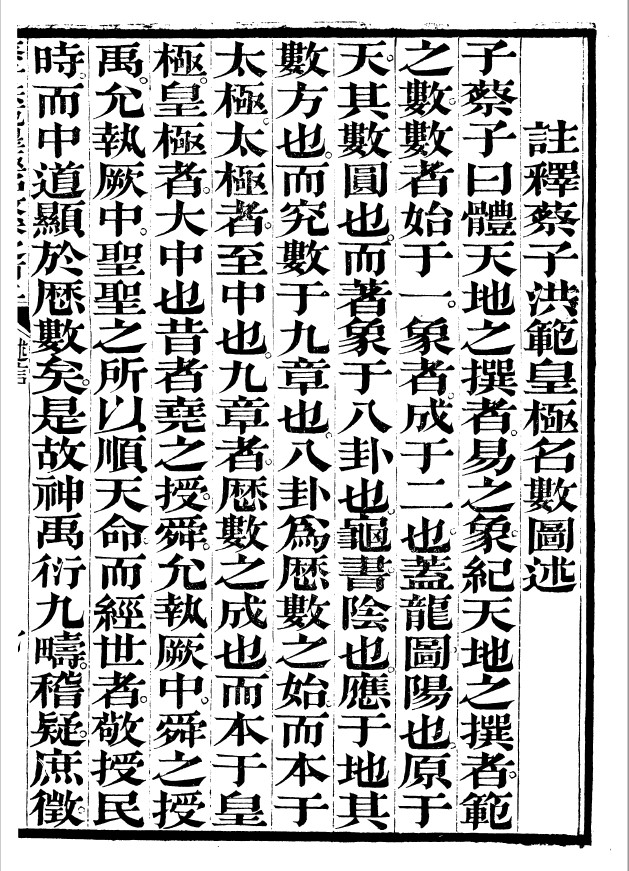 註釋蔡子洪範皇極名數圖述
子蔡子曰體天地之撰者易之象紀天地之撰者範
之數數者始于一象者成于二也蓋龍圖陽也原于
天其數圓也而著象于八卦也龜書陰也應于地其
數方也而究數于九章也八卦爲歷數之始而本于
太極太極者至中也九章者歷數之成也而本于皇
極皇極者大中也昔者堯之授舜允執厥中舜之授
禹允執厥中聖聖之所以順天命而經世者敬授民
時而中道顯於歷數矣是故神禹衍九疇稽疑庶徵